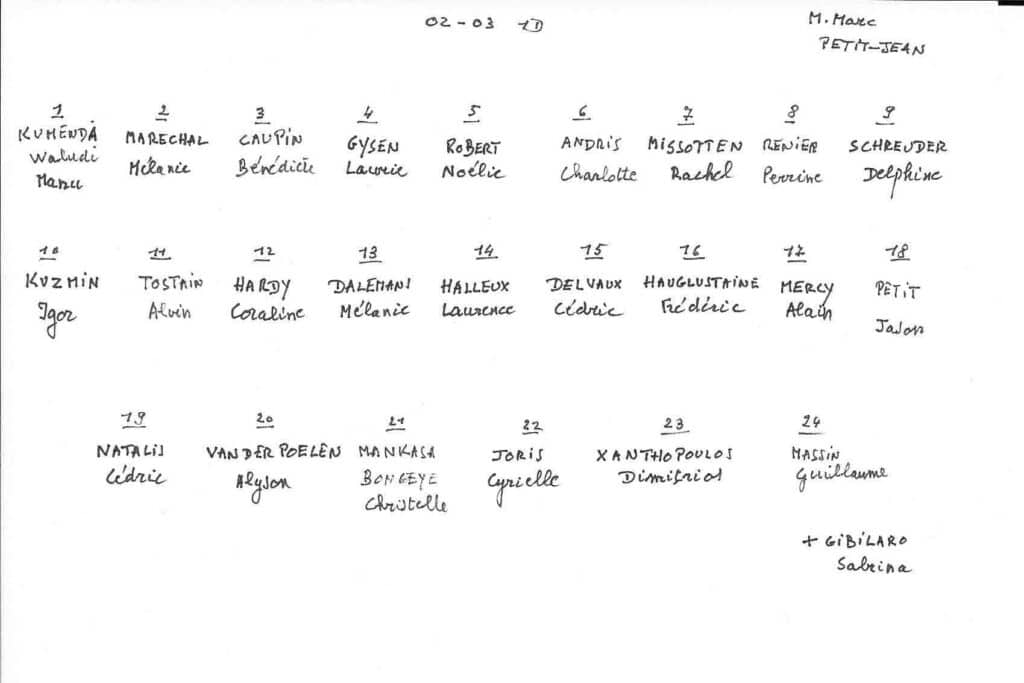 02-03 1D
M. Marc
PETIT-JEAN
1 2 3 4 5 6 7 8 9
KUMENDA MARECHAL CAUPIN GYSEN ROBERT ANDRIS MISSOTTEN RENIER SCHREUDER
Waludi Mélanie Bénédicte Laurie Noélie Charlotte Rachel Perrine Delphine
Manu
10 11 12 13 14 15 16 17 18
KUZMIN TOSTAIN HARDY DALEMANS HALLEUX DELVAUX HAUGLUSTAINE MERCY PETIT
Igor Alvin Coraline Mélanie Laurence Cédric Frédéric Alain Jason
19 20 21 22 23 24
NATALIS VANDER POELEN MANKASA JORIS XANTHOPOULOS MASSIN
Cédric Alyson BONGEYE Cyrielle Dimitrios Guillaume
Christelle
+ GIBILARO
Sabrina